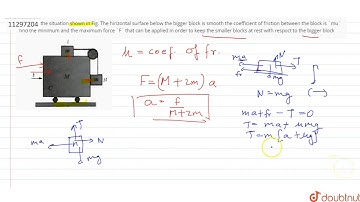 11297204 the situation shown in Fig. The horizontal surface below the bigger block is smooth the coefficient of friction between the block is mu
find the minimum and the maximum force `F` that can be applied in order to keep the smaller blocks at rest with respect to the bigger block
μ = coef. of fr.
F = (M + 2m) a
a = F / (M + 2m)
N = mg
ma + fr - T = 0
T = ma + μmg
T = m[a + μg]
F
m
M
m
C
ma
fr
N
T
mg
T
ma
m
N
mg
doubtnut